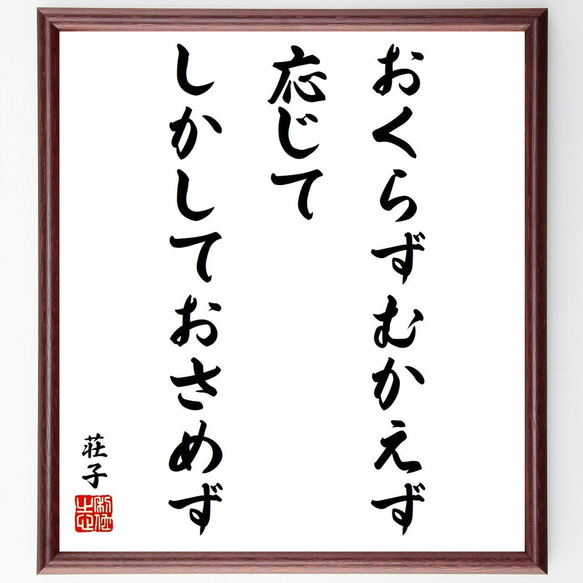 おくらずむかえず
応じて
しかしておさめず
荘子